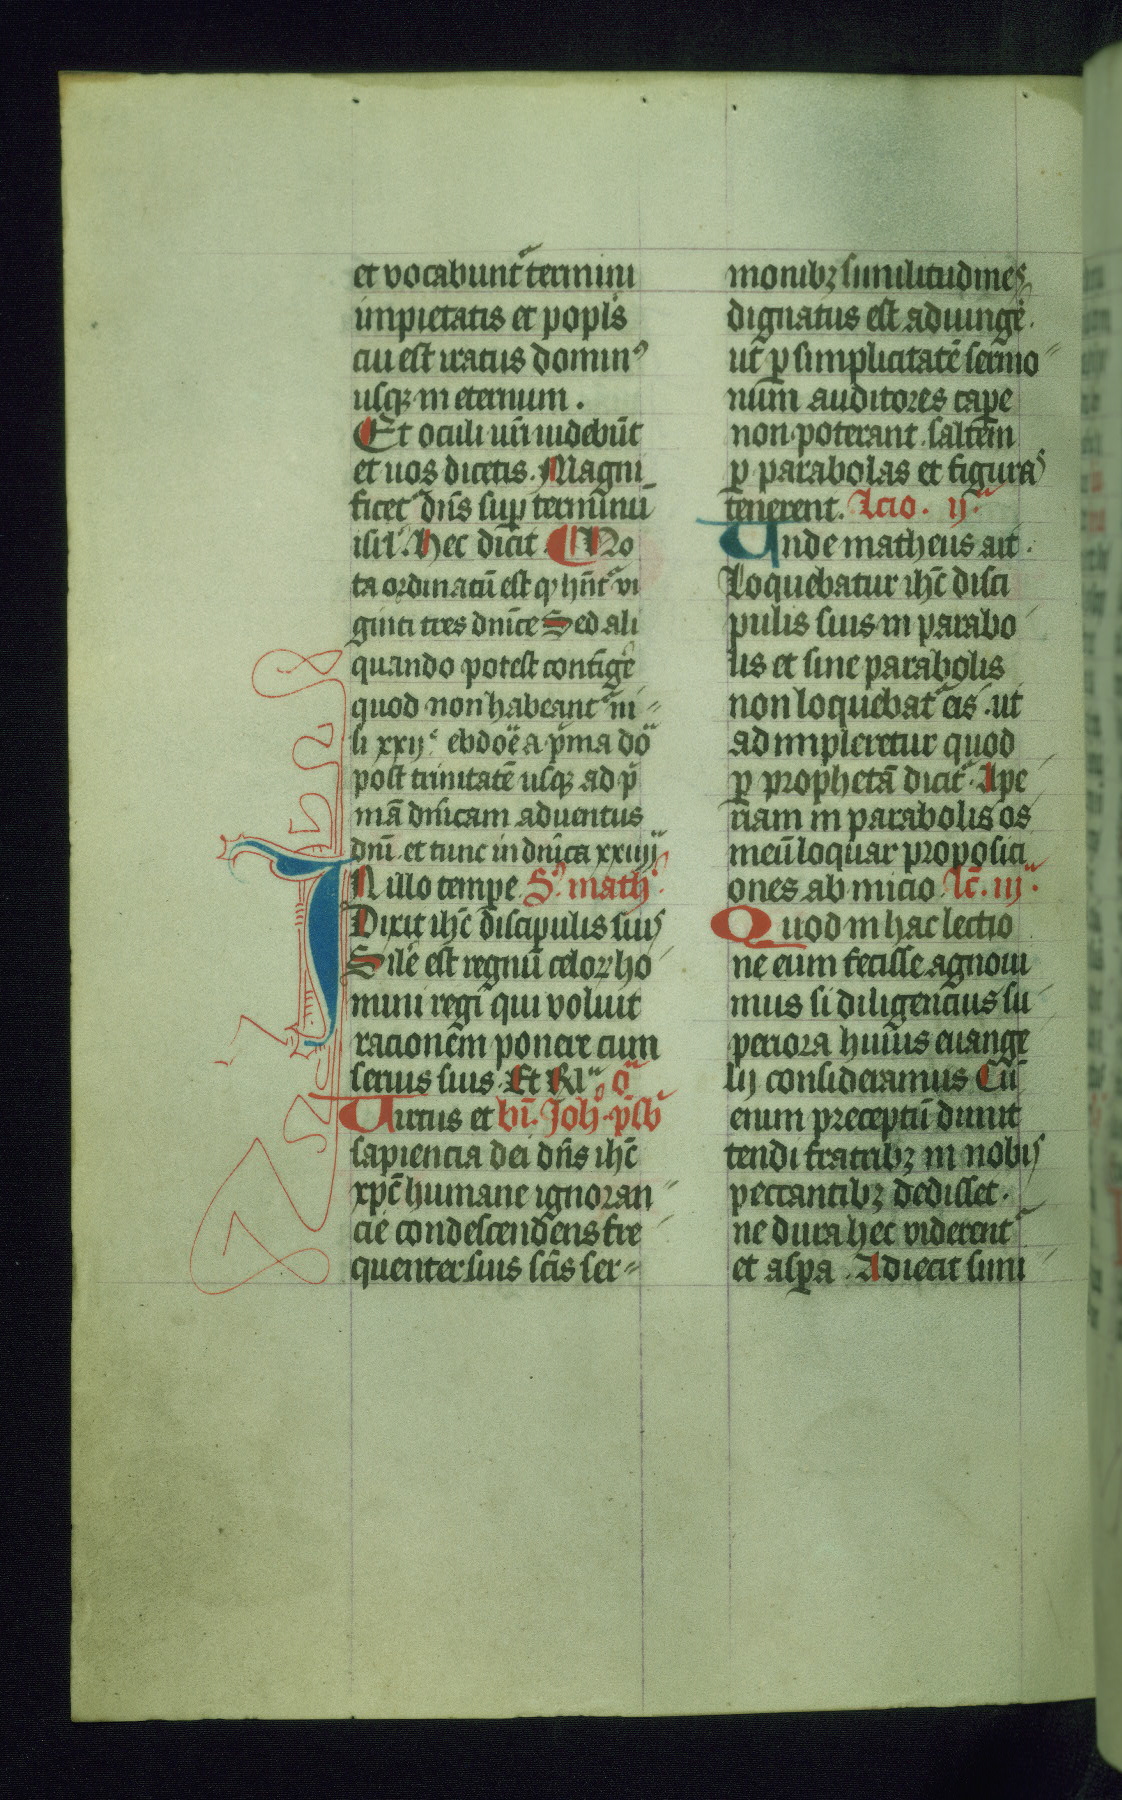 et vocabunt᷑ termini
impietatis et popl's
cui est iratus domin⁹
usq̨ in eternum .
Et oculi ur̃i uideb̃ut
et uos dicetis. Magni
ficet᷑ dñs sup terminũ
isrl'. Hec dicit . ¶ No
ta ordinatũ est q̨ hñt᷑ vi
ginti tres dnĩce Sed ali
quando potest contiḡe
quod non habeant᷑ ni
si xxij ebdoẽ a p̃ma dõ
post trinitatẽ usq̨ ad p̃
mã dnĩcam aduentus
dnĩ et tunc in dnĩca xxiiij
IN illo tempe S. math.
Dixit ihc̃ discipulis suis
Sil'e est regnũ celoꝝ ho
mini regi qui voluit
racionem ponere cum
seruis suis. Et Rl'a o᷑
Uirtus et bĩ. Joh. p̃sb
sapiencia dei dñs ihc̃
xpc̃ humane ignoran
cie condescendens fre
quenter suis scĩs ser
monibꝫ similitudines
dignatus est adiunge᷑.
ut ꝑ simplicitatẽ sermo
num auditores capꝑe
non poterant saltem
ꝑ parabolas et figuras
tenerent. Lcio . ij.
Unde matheus ait .
Loquebatur ihc̃ disci
pulis suis in parabo
lis et sine parabolis
non loquebat᷑ eis . ut
adimpleretur quod
ꝑ prophetã dicit᷑. Ape
riam in parabolis os
meũ loquar proposici
ones ab inicio. Lc̃. iij.
Quod in hac lectio
ne eum fecisse agnoui
mus si diligencius su
periora huius euange
lij consideramus Cũ
enim preceptũ dimit
tendi fratribꝫ in nobis
peccantibꝫ dedisset .
ne dura hec viderent᷑
et asꝑa . Adiecit simi